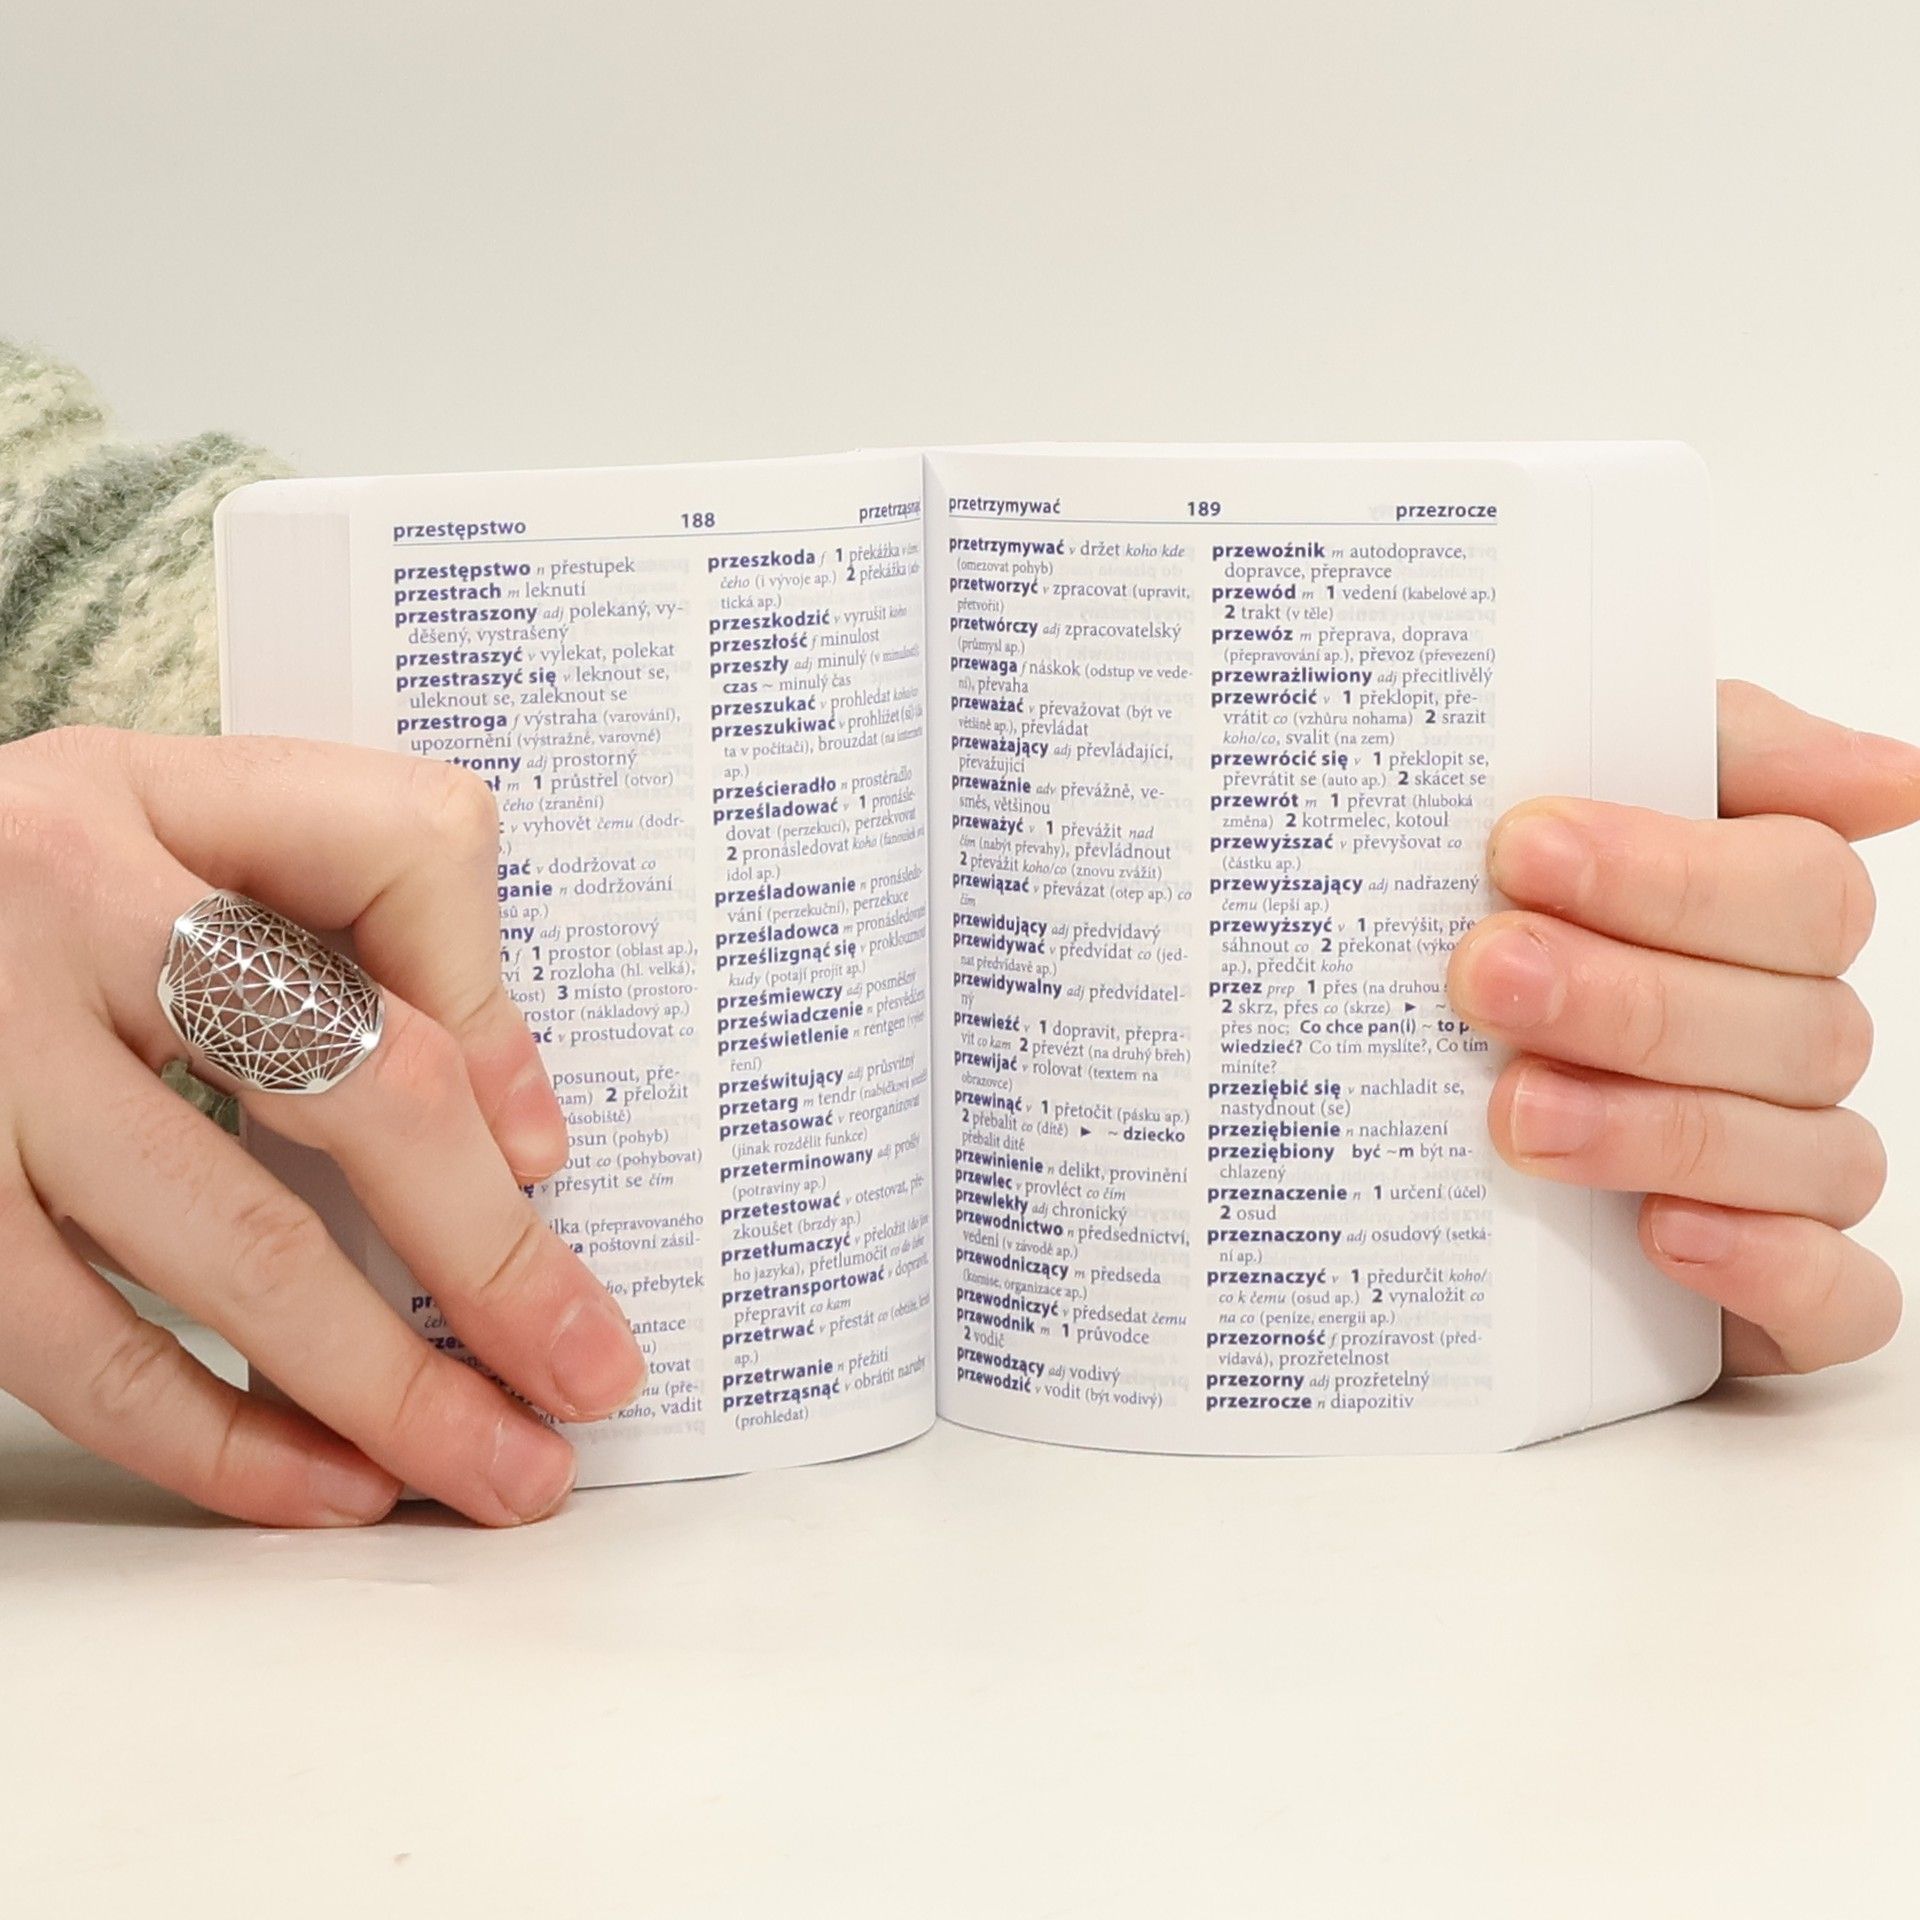 przestępstwo 188
przestępstwo n přestupek
przestrach m leknutí
przestraszony adj polekaný, vy-
děšený, vystrašený
przestraszyć v vylekat, polekat
przestraszyć się v leknout se,
uleknout se, zaleknout se
przestroga f výstraha (varování),
upozornění (výstražné, varovné)
adj prostorný
m 1 průstřel (otvor)
čeho (zranění)
v vyhovět čemu (dodr-
v dodržovat co
n dodržování
adj prostorový
f 1 prostor (oblast ap.),
2 rozloha (hl. velká),
3 místo (prostoro-
(nákladový ap.)
v prostudovat co
posunout, pře-
2 přeložit
(pohyb)
co (pohybovat)
v přesytit se čím
(přepravovaného
poštovní zásil-
přebytek
(pře-
koho, vadit
przeszkoda f 1 překážka
čeho (i vývoje ap.) 2 překážka
tická ap.)
przeszkodzić v vyrušit koho
przeszłość f minulost
przeszły adj minulý (v minulosti):
czas ~ minulý čas
przeszukać v prohledat koho/co
przeszukiwać v prohlížet (si)
ta v počítači), brouzdat (na internetu
ap.)
prześcieradło n prostěradlo
prześladować v 1 pronásle-
dovat (perzekucí), perzekvovat
2 pronásledovat koho
idol ap.)
prześladowanie n pronásledo-
vání (perzekuční), perzekuce
prześladowca m pronásledovatel
prześlizgnąć się v proklouznout
kudy (potají projít ap.)
prześmiewczy adj posměšný
przeświadczenie n přesvědčení
prześwietlenie n rentgen
ření)
prześwitujący adj průsvitný
przetarg m tendr
przetasować v reorganizovat
(jinak rozdělit funkce)
przeterminowany adj prošlý
(potraviny ap.)
przetestować v otestovat, pře-
zkoušet (brzdy ap.)
przetłumaczyć v přeložit
ho jazyka), přetlumočit co do čeho
przetransportować v dopravit,
přepravit co kam
przetrwać v přestát co
ap.)
przetrwanie n přežití
przetrząsnąć v obrátit naruby
(prohledat)
przetrzymywać 189 przezrocze
przetrzymywać v držet koho kde
(omezovat pohyb)
przetworzyć v zpracovat (upravit,
přetvořit)
przetwórczy adj zpracovatelský
(průmysl ap.)
przewaga f náskok (odstup ve vede-
ní), převaha
przeważać v převažovat (být ve
většině ap.), převládat
przeważający adj převládající,
převažující
przeważnie adv převážně, ve-
směs, většinou
przeważyć v 1 převážit nad
čím (nabýt převahy), převládnout
2 převážit koho/co (znovu zvážit)
przewiązać v převázat (otep ap.) co
čím
przewidujący adj předvídavý
przewidywać v předvídat co (jed-
nat předvídavě ap.)
przewidywalny adj předvídatel-
ný
przewieźć v 1 dopravit, přepra-
vit co kam 2 převézt (na druhý břeh)
przewijać v rolovat (textem na
obrazovce)
przewinąć v 1 přetočit (pásku ap.)
2 přebalit co (dítě) ► ~ dziecko
přebalit dítě
przewinienie n delikt, provinění
przewlec v provléct co čím
przewlekły adj chronický
przewodnictwo n předsednictví,
vedení (v závodě ap.)
przewodniczący m předseda
(komise, organizace ap.)
przewodniczyć v předsedat čemu
przewodnik m 1 průvodce
2 vodič
przewodzący adj vodivý
przewodzić v vodit (být vodivý)
przewoźnik m autodopravce,
dopravce, přepravce
przewód m 1 vedení (kabelové ap.)
2 trakt (v těle)
przewóz m přeprava, doprava
(přepravování ap.), převoz (převezení)
przewrażliwiony adj přecitlivělý
przewrócić v 1 překlopit, pře-
vrátit co (vzhůru nohama) 2 srazit
koho/co, svalit (na zem)
przewrócić się v 1 překlopit se,
převrátit se (auto ap.) 2 skácet se
przewrót m 1 převrat (hluboká
změna) 2 kotrmelec, kotoul
przewyższać v převyšovat co
(částku ap.)
przewyższający adj nadřazený
čemu (lepší ap.)
przewyższyć v 1 převýšit, pře
sáhnout co 2 překonat
ap.), předčit koho
przez prep 1 přes (na druhou
2 skrz, přes co (skrze) ► ~
přes noc; Co chce pan(i) ~ to
wiedzieć? Co tím myslíte?, Co tím
míníte?
przeziębić się v nachladit se,
nastydnout (se)
przeziębienie n nachlazení
przeziębiony być ~m být na-
chlazený
przeznaczenie n 1 určení (účel)
2 osud
przeznaczony adj osudový (setká-
ní ap.)
przeznaczyć v 1 předurčit koho/
co k čemu (osud ap.) 2 vynaložit co
na co (peníze, energii ap.)
przezorność f prozíravost (před-
vídavá), prozřetelnost
przezorny adj prozřetelný
przezrocze n diapozitiv